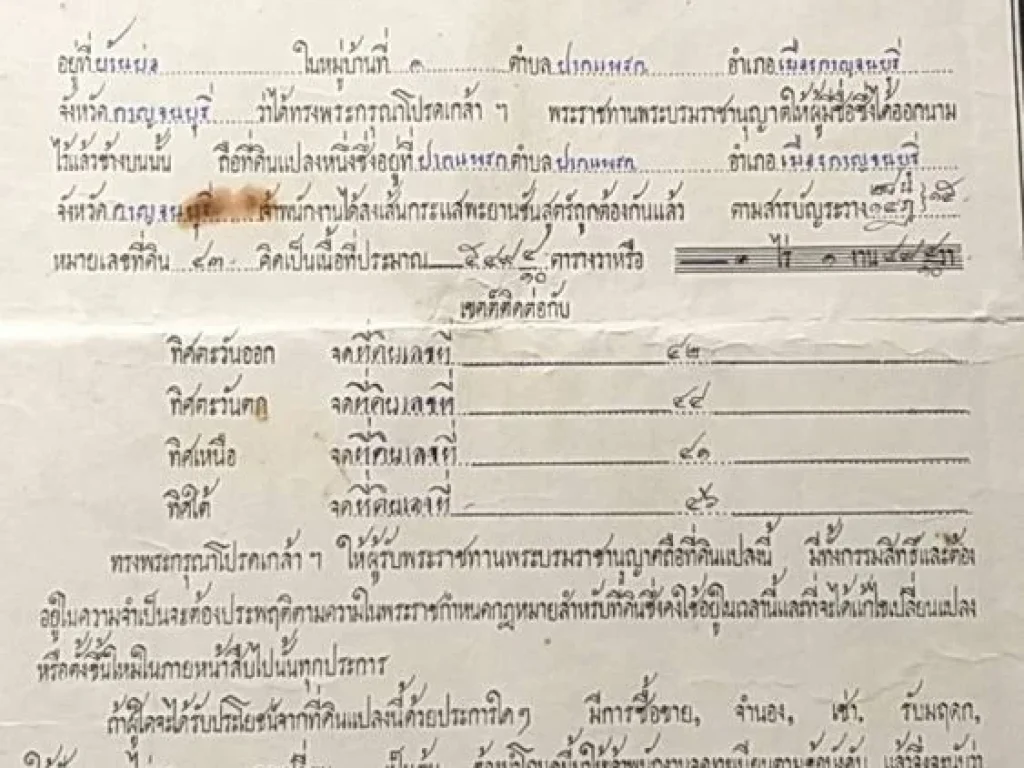 อยู่ที่บ้านบ่อ ในหมู่บ้านที่ ๑ ตำบล ปากแพรก อำเภอ เมืองกาญจนบุรี
จังหวัด กาญจนบุรี ว่าได้ทรงพระกรุณาโปรดเกล้า ฯ พระราชทานพระบรมราชานุญาตให้ผู้มีชื่อซึ่งได้ออกนาม
ไว้แล้วข้างบนนั้น ถือที่ดินแปลงหนึ่งซึ่งอยู่ที่ ปากแพรก ตำบล ปากแพรก อำเภอ เมืองกาญจนบุรี
จังหวัด กาญจนบุรี เจ้าพนักงานได้ลงเส้นกระแสพะยานชันสูตร์ถูกต้องกันแล้ว ตามสารบัญระวาง
หมายเลขที่ดิน ๔๓ คิดเป็นเนื้อที่ประมาณ ๕๔๙ ๔/๑๐ ตารางวาหรือ ๑ ไร่ ๑ งาน ๔๙ ๔/๑๐ วา
เขตต์ติดต่อกับ
ทิศตะวันออก จดที่ดินเลขที่ ๔๒
ทิศตะวันตก จดที่ดินเลขที่ ๔๔
ทิศเหนือ จดที่ดินเลขที่ ๔๑
ทิศใต้ จดที่ดินเลขที่ ๔๖
ทรงพระกรุณาโปรดเกล้า ฯ ให้ผู้รับพระราชทานพระบรมราชานุญาตถือที่ดินแปลงนี้ มีทั้งกรรมสิทธิ์และต้อง
อยู่ในความจำเป็นจะต้องประพฤติตามความในพระราชกำหนดกฎหมายสำหรับที่ดินซึ่งคงใช้อยู่ในเวลานี้และที่จะได้แก้ไขเปลี่ยนแปลง
หรือตั้งขึ้นใหม่ในภายหน้าสืบไปนั้นทุกประการ
ถ้าผู้ใดจะได้รับประโยชน์จากที่ดินแปลงนี้ด้วยประการใด ๆ มีการซื้อขาย, จำนอง, เช่า, รับมฤดก,